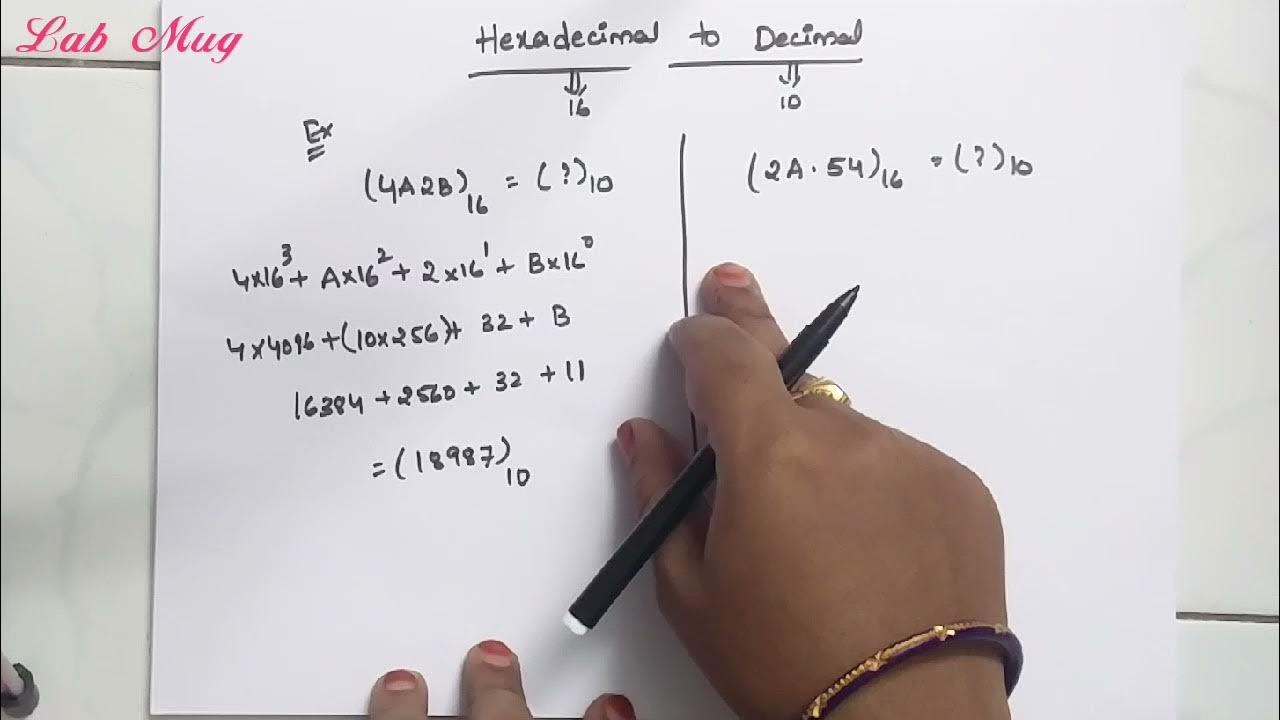 Lab Mug
Hexadecimal to Decimal
⇓ ⇓
16 10
Ex
(4A2B)₁₆ = (?)₁₀
4×16³ + A×16² + 2×16¹ + B×16⁰
4×4096 + (10×256) + 32 + B
16384 + 2560 + 32 + 11
= (18987)₁₀
(2A·54)₁₆ = (?)₁₀